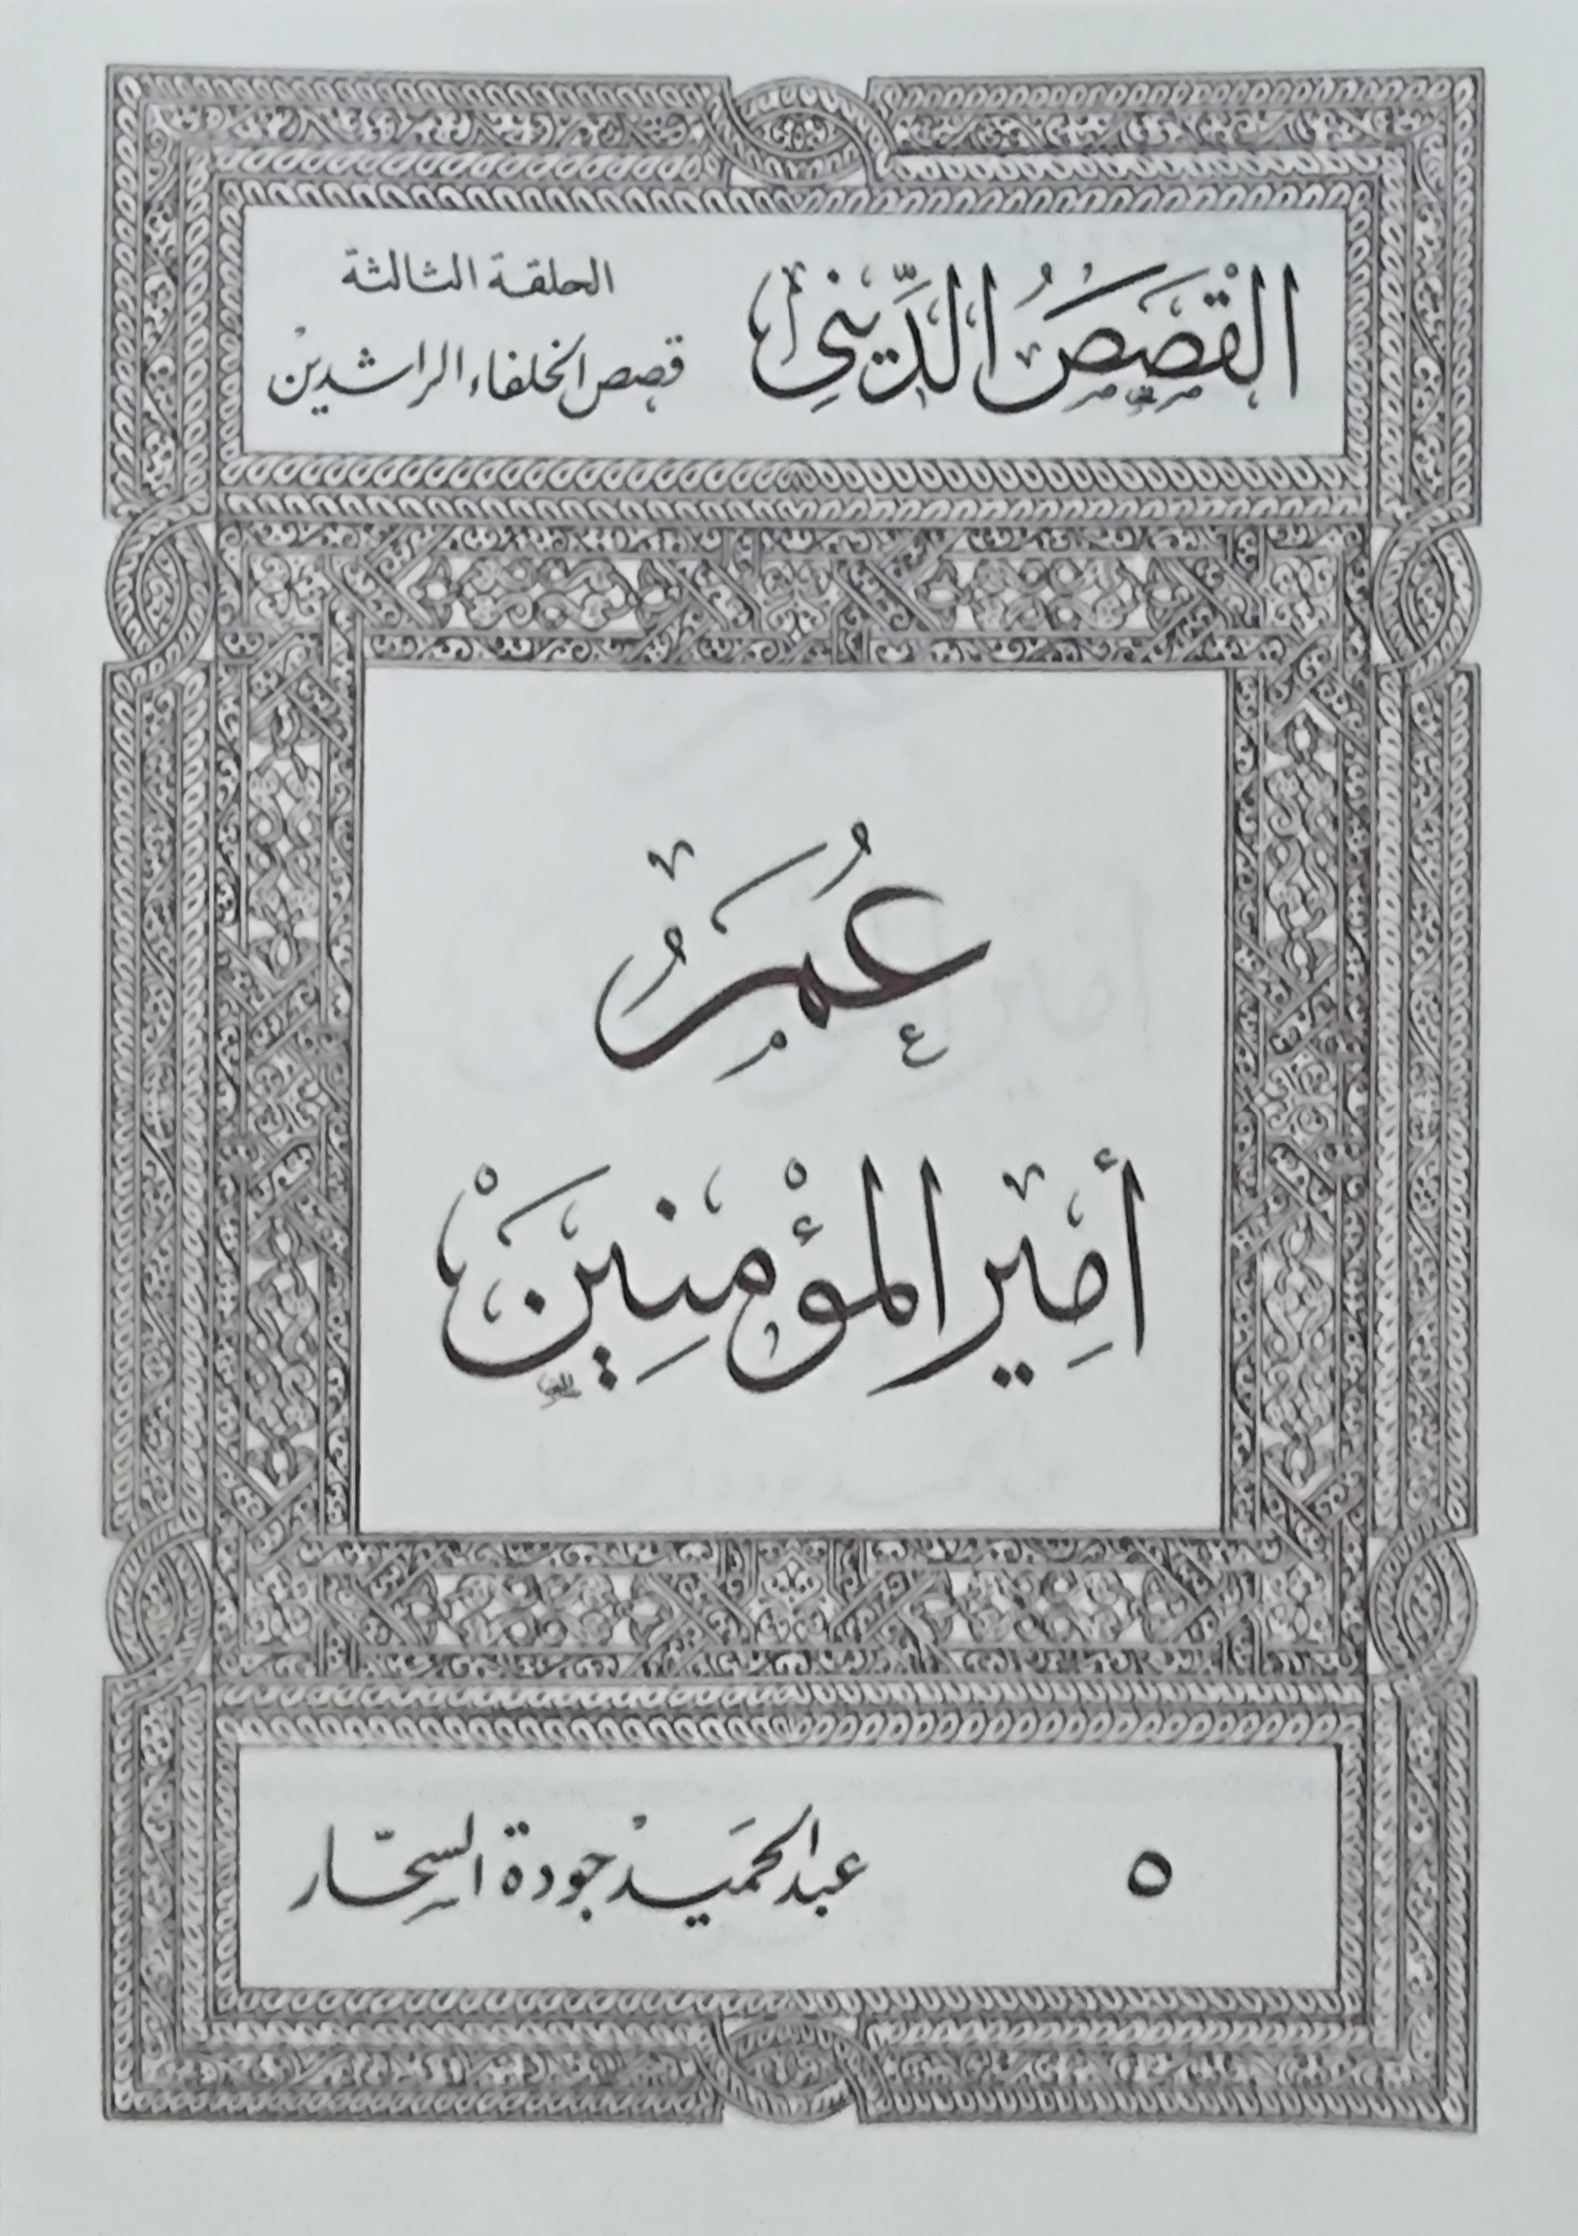 القَصَصُ الدِّينِي
الحلقة الثالثة
قصص الخلفاء الراشدين
عُمَرُ
أمِير المؤْمنِينَ
٥
عبد الحَميد جودة السِحّار